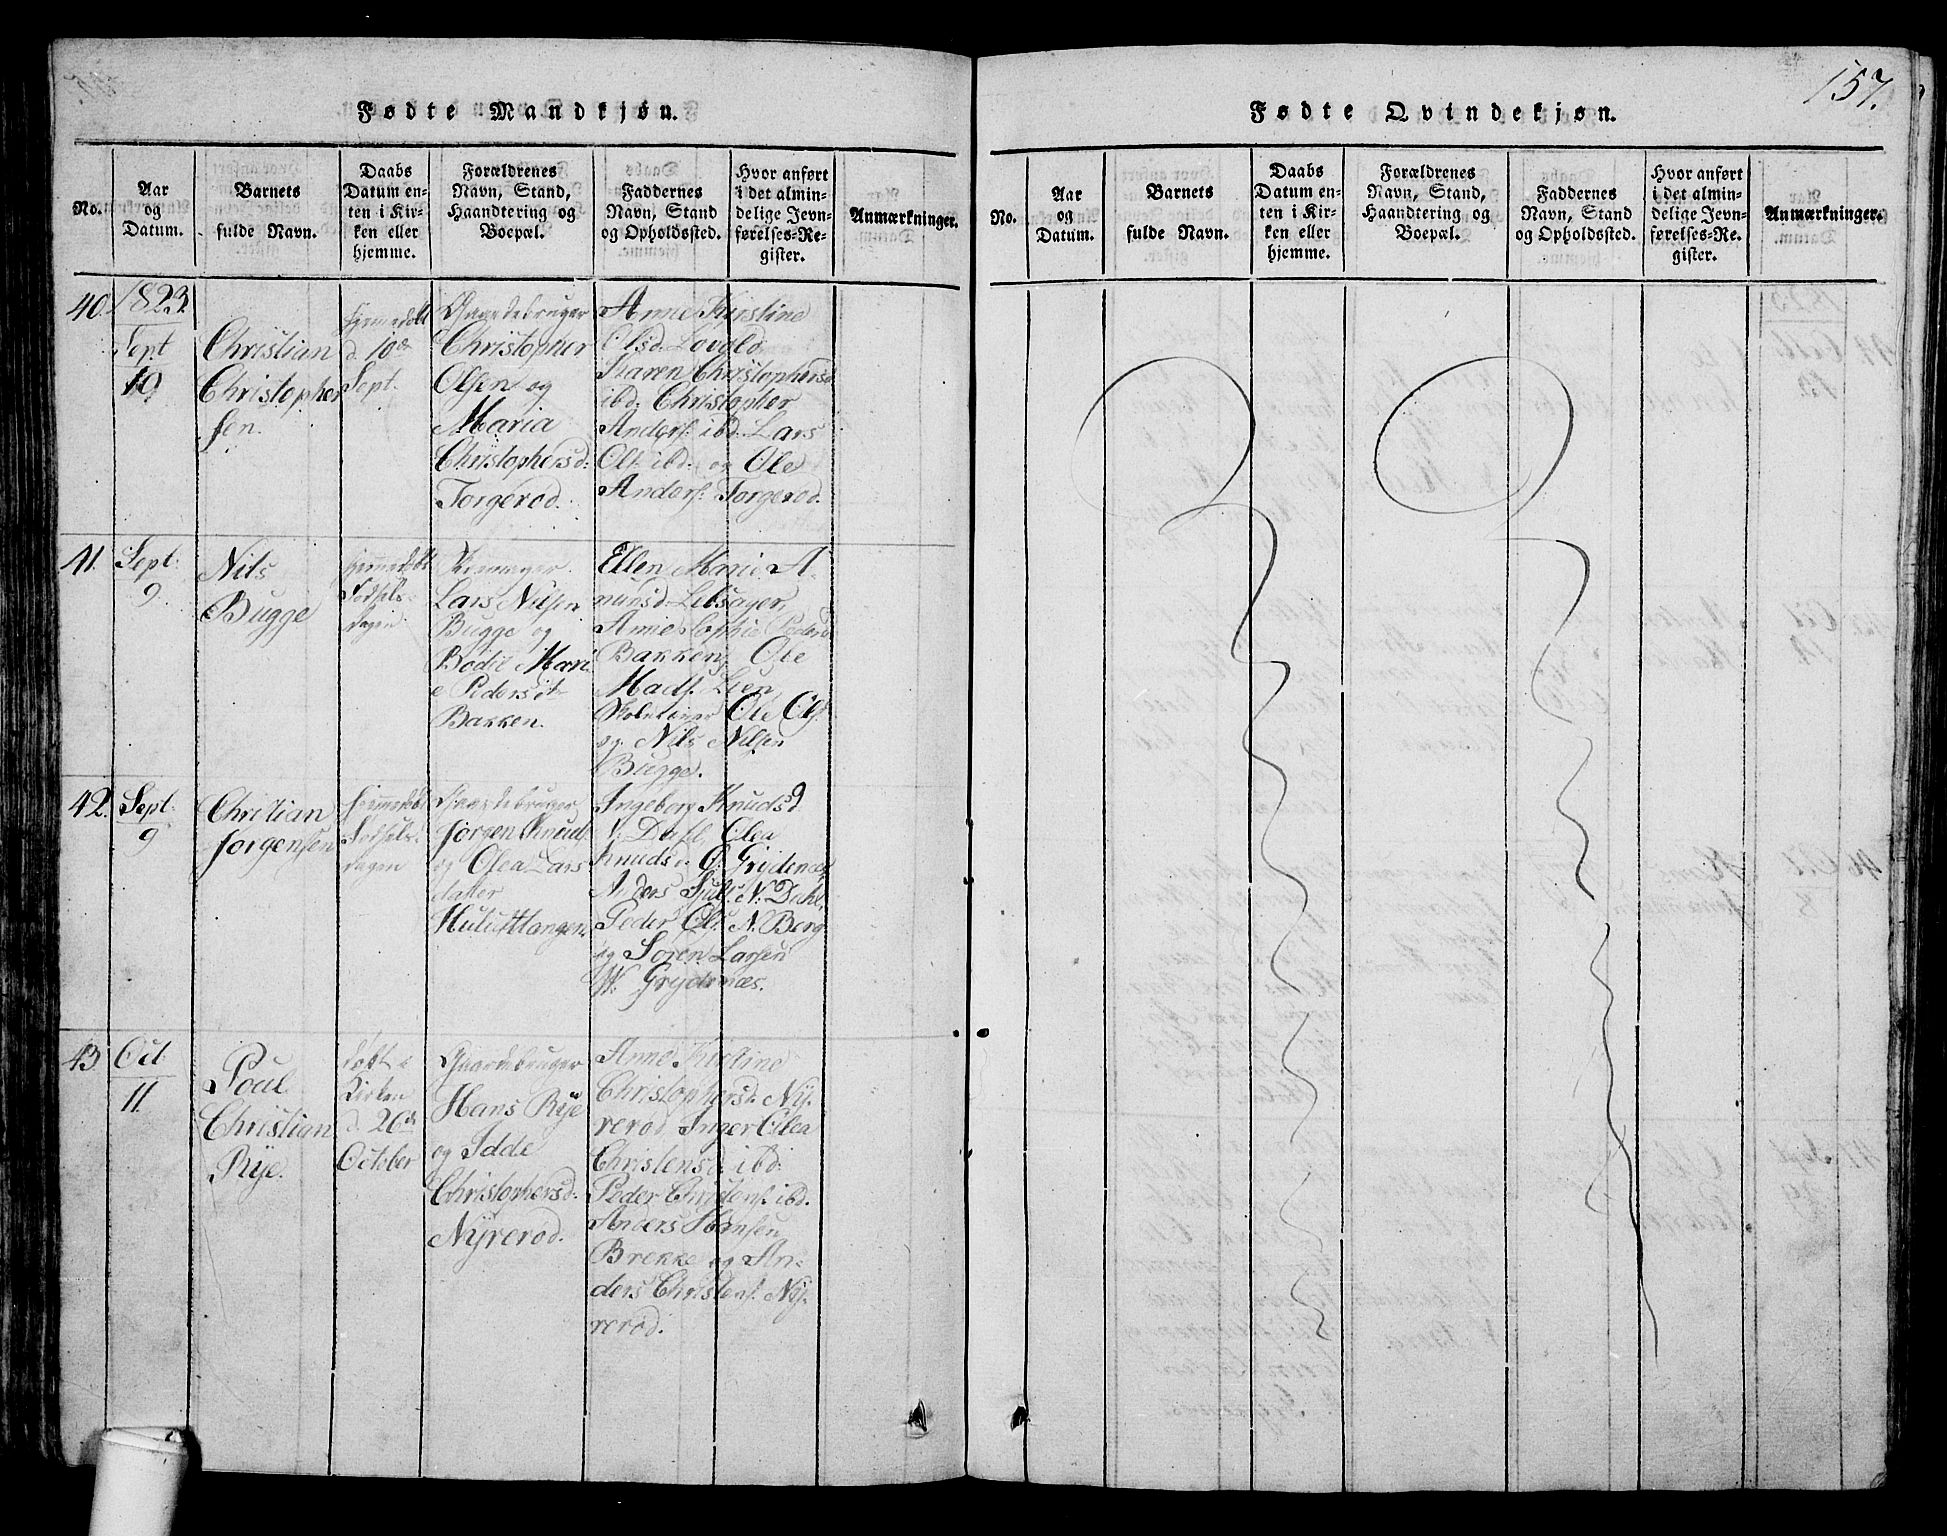 157.
Fødte Mandkjøn.
No.
Aar
og
Datum.
Barnets
fulde Navn.
Daabs
Datum en-
ten i Kir-
ken eller
hjemme.
Forældrenes
Navn, Stand,
Haandtering og
Boepæl.
Faddernes
Navn, Stand
og Opholdssted.
Hvor anført
i det almin-
delige Jevn-
førelses-Re-
gister.
Anmærkninger.
40.
1823
Sept
19
Christian
Christopher
sen.
hjemedøbt
d. 10de
Sept.
Gaardebruger
Christopher
Olsen og
Maria
Christophersd:
Torgerød.
Anne Kirstine
Olsd. Lovold
Karen Christophersd
ibd. Christopher
Anders: ibd. Lars
Ols: ibd. og Ole
Anders: Torgerød.
41.
Sept:
9
Nils
Bugge
hjemedøbt
Fødsels-
dagen
Lars Nilsen
Bugge og
Bodil Mari
e Pedersdt
Bakken.
Ellen Marie A-
mundsd Lebsager,
Anne Sophie Pedersd
Bakken, Ole
Mads. Lien
Skolelærer Ole Ols.
og Nils Nilsen
Bugge.
42.
Sept:
9
Christian
Jørgensen
hjemmedøbt
Fødsels-
dagen
Gaardebruger
Jørgen Knuds.
og Olea Lars
datter
Hulu Hangen.
Ingeborg Knudsd
N. Dahl Olea
Knudsd. G. Grydenæs,
Anders Juls. N. Dahl,
Peder Ols. N. Berg
og Søren Larsen
W. Grydenæs.
43.
Oct
11.
Poul
Christian
Rÿe.
døbt i
Kirken
d. 26de
October
Gaardebruger
Hans Rÿe
og Idde
Christophersd:
Nÿrerød.
Anne Kirstine
Christophersd. Nÿ-
rerød, Inger Olea
Christensd. ibd.
Peder Christens. ibd.
Anders Hansen
Brekke og An-
ders Christens. Nÿ-
rerød.
Fødte Qvindekjøn.
No.
Aar
og
Datum.
Barnets
fulde Navn.
Daabs
Datum en-
ten i Kir-
ken eller
hjemme.
Forældrenes
Navn, Stand,
Haandtering og
Boepæl.
Faddernes
Navn, Stand
og Opholdssted.
Hvor anført
i det almin-
delige Jevn-
førelses-Re-
gister.
Anmærkninger.